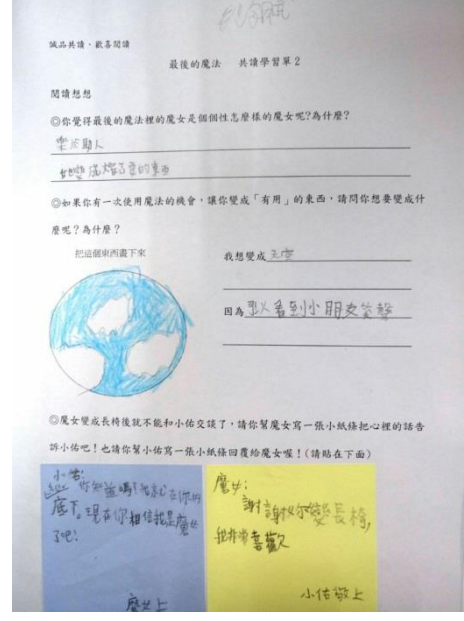 誠品共讀‧歡喜閱讀
最後的魔法　共讀學習單 2
閱讀想想
◎你覺得最後的魔法裡的魔女是個個性怎麼樣的魔女呢?為什麼?
樂於助人
◎如果你有一次使用魔法的機會，讓你變成「有用」的東西，請問你想要變成什
麼呢？為什麼？
把這個東西畫下來
我想變成 天空
因為 可以看到小朋友笑聲
◎魔女變成長椅後就不能和小佑交談了，請你幫魔女寫一張小紙條把心裡的話告
訴小佑吧！也請你幫小佑寫一張小紙條回覆給魔女喔！(請貼在下面)
小佑:
你知道嗎?我就在你的
底下。現在你相信我是魔女
了吧!
魔女上
魔女:
謝謝你變長椅,
我非常喜歡
小佑敬上